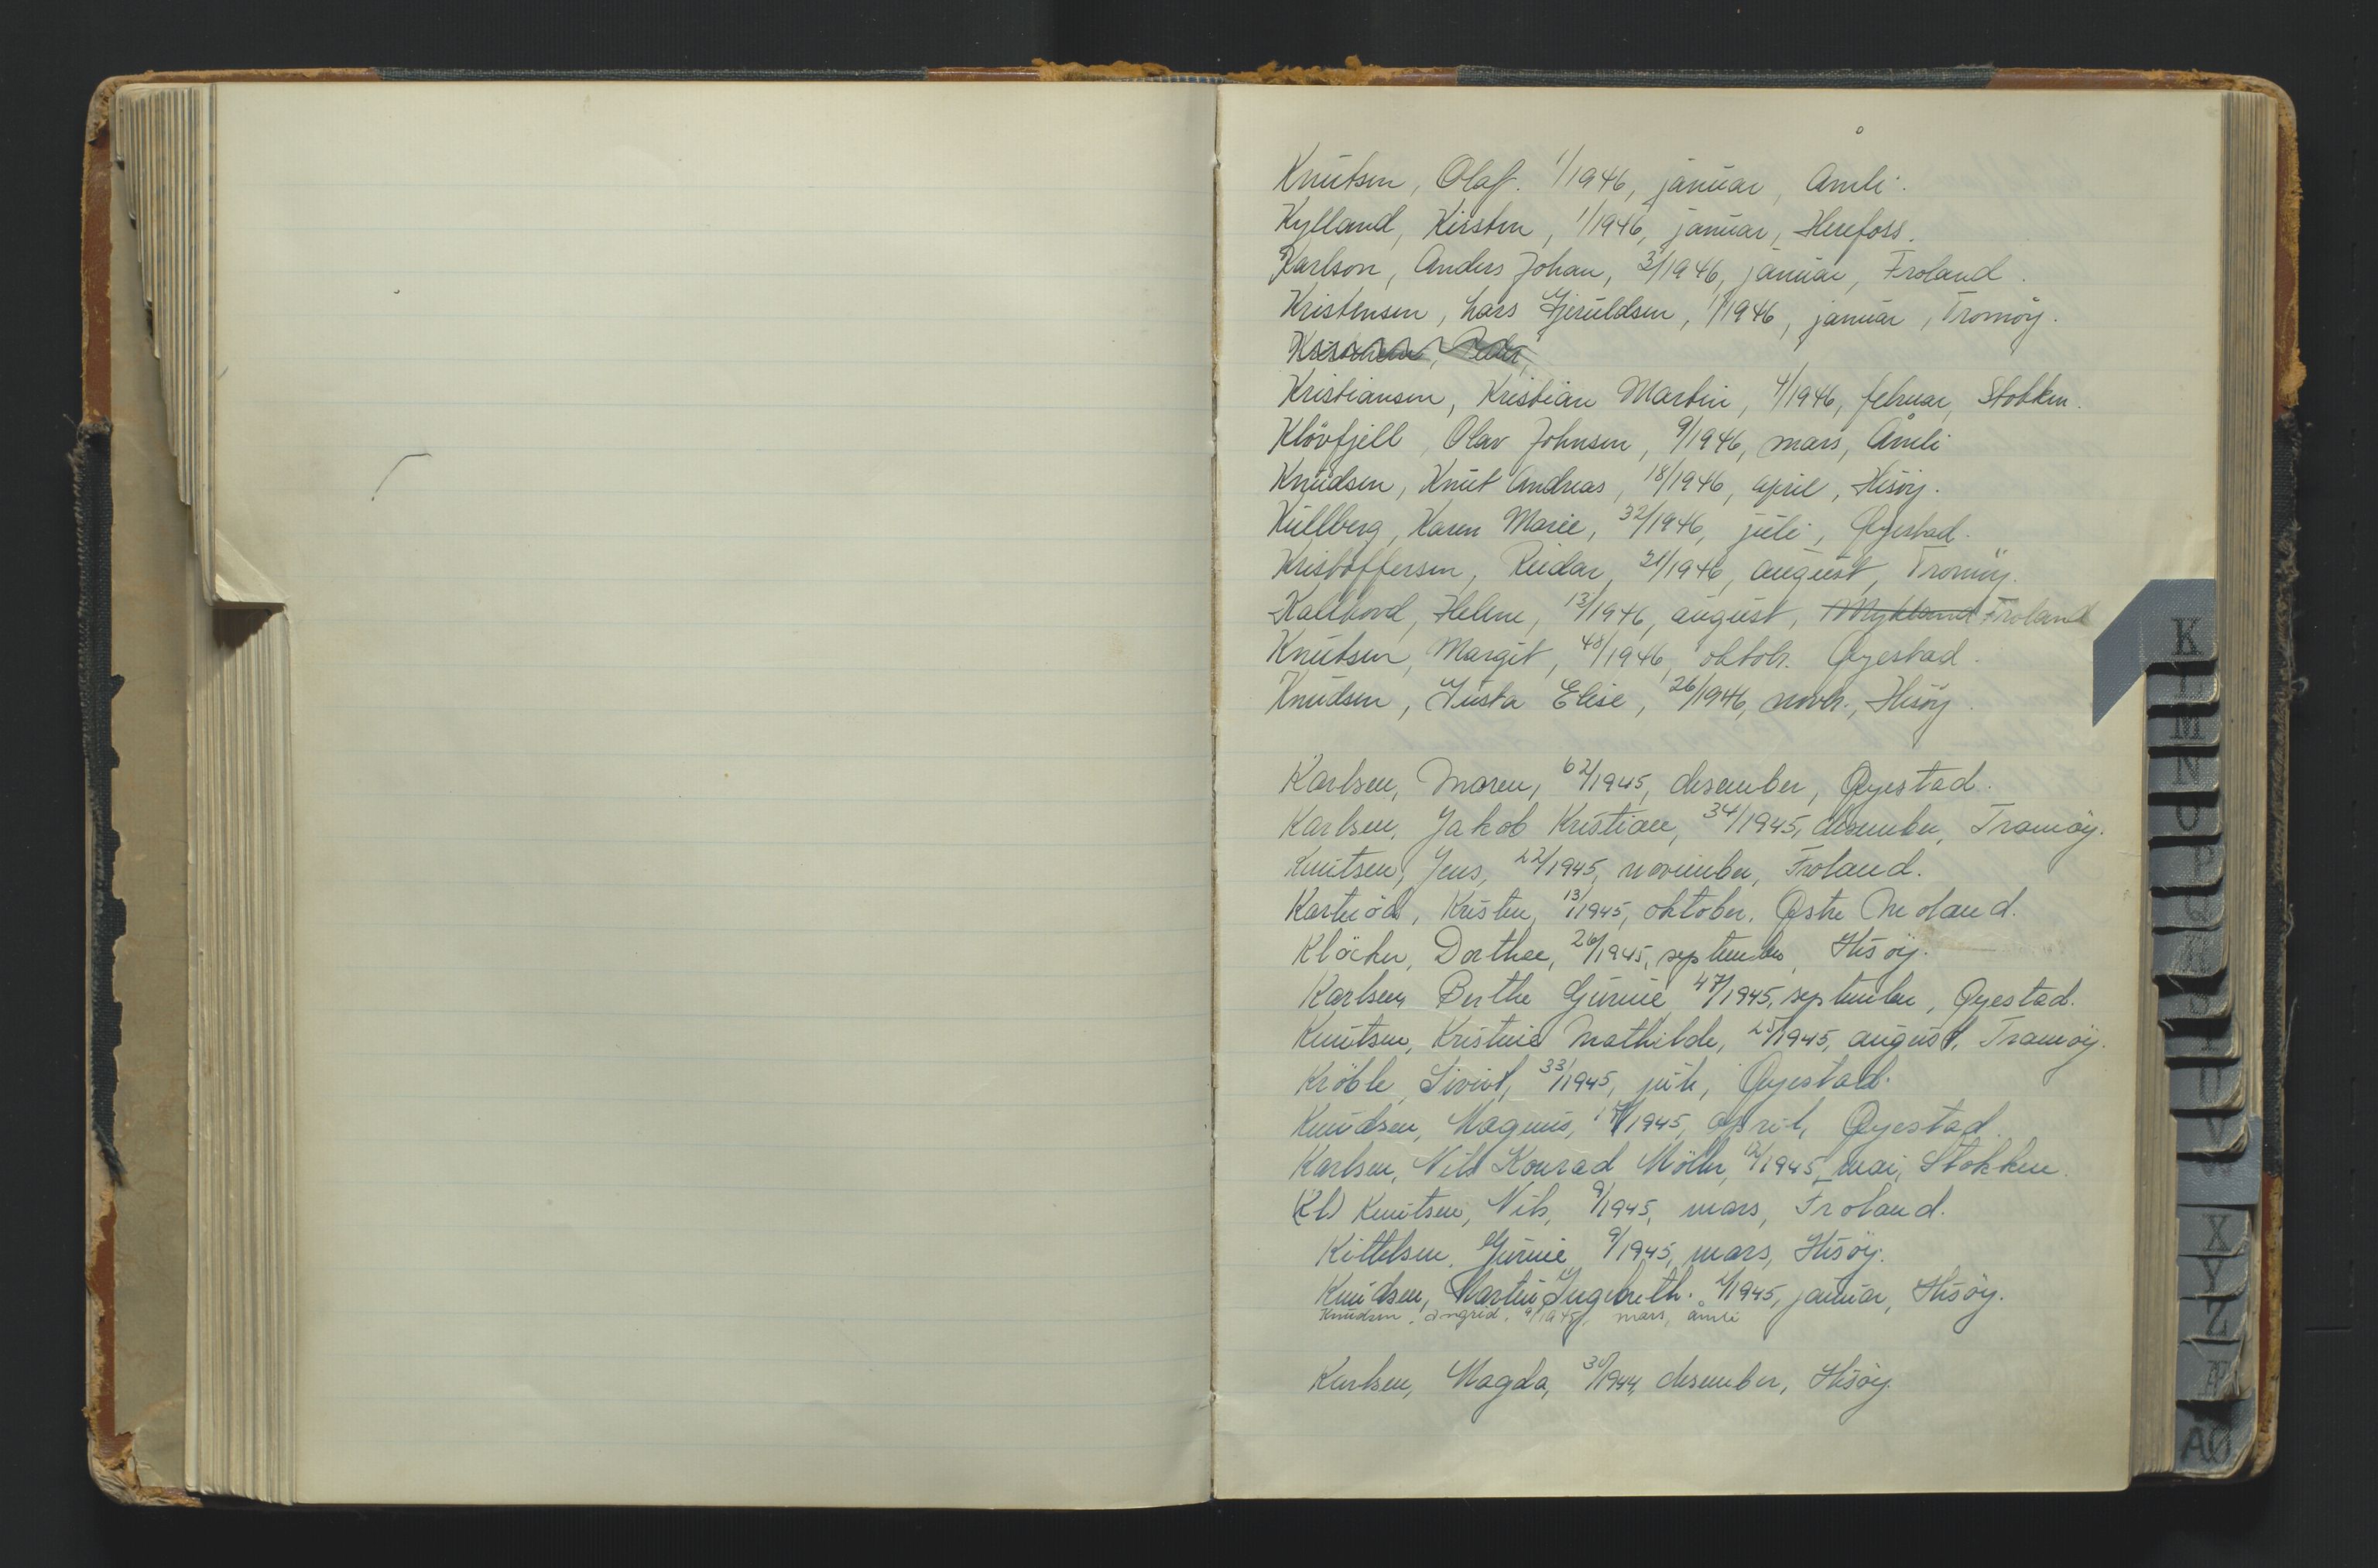 Knutsen, Olaf. 1/1946, januar, Åmli.
Kylland, Kirsten, 1/1946, januar, Herefoss.
Karlson, Anders Johan, 3/1946, januar, Froland.
Kristensen, Lars Gjeruldsen, 1/1946, januar, Tromøy.
Kristiansen, Kristian Martin, 4/1946, februar, Stokken.
Kløvfjell, Olav Johnsen, 9/1946, mars, Åmli
Knudsen, Knut Andreas, 18/1946, april, Hisøy.
Kullberg, Karen Marie, 32/1946, juli, Øyestad.
Kristoffersen, Reidar, 21/1946, august, Tromøy.
Kaltbord, Helene, 13/1946, august, Mykland Froland
Knutsen, Margit, 48/1946, oktob. Øyestad.
Knudsen, Justa Elise, 26/1946, novb., Hisøy.
Karlsen, Maren, 62/1945, desember, Øyestad.
Karlsen, Jakob Kristian, 34/1945, desember, Tromøy.
Knutsen, Jens, 22/1945, november, Froland.
Kristen, 13/1945, oktober, Østre Moland.
Klöcker, Dorthea, 26/1945, september, Hisøy.
Karlsen, Berthe Gurine 47/1945, september, Øyestad.
Knutsen, Kristine Mathilde, 25/1945, august, Tromøy.
Krøble, Sivert, 33/1945, juli, Øyestad.
Knudsen, Magnus, /1945, april, Øyestad.
Karlsen, Nils Konrad Møller, 12/1945, mai, Stokken.
(Kl) Knutsen, Nils, 9/1945, mars, Froland.
Kittelsen, Gurine 9/1945, mars, Hisøy.
Knudsen, Martin Ingebreth. 1/1945, januar, Hisøy.
Knudsen, Ingrid, 9/1945, mars, Åmli
Karlsen, Magda, 30/1944, desember, Hisøy.
K
L
M
N
O
P
Q
R
S
T
U
V
X
Y
Z
Æ
AØ